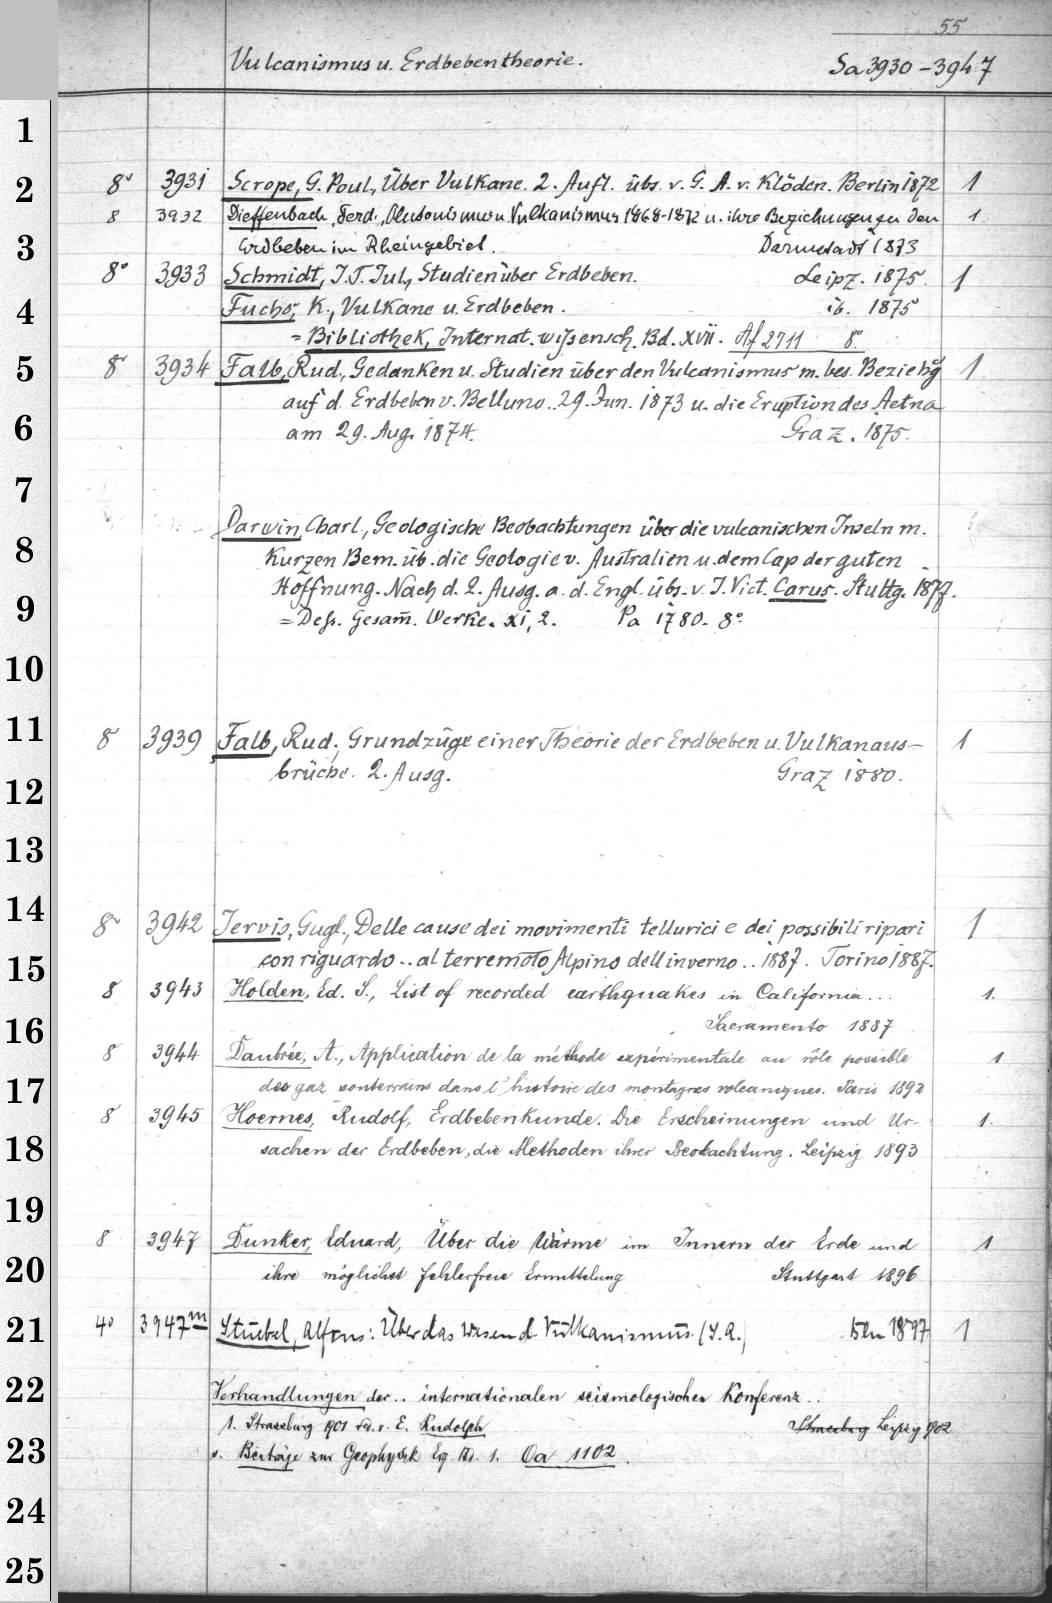 55
Vulcanismus u. Erdbebentheorie. Sa 3930 - 3947
1
2 8° 3931 Scrope, G. Poul, Über Vulkane. 2. Aufl. übs. v. G. A. v. Klöden. Berlin 1872 1
8 3932 Dieffenbach, Ferd., Plutonismus u. Vulkanismus 1868-1872 u. ihre Beziehungen zu den 1
3 Erdbeben im Rheingebiet. Darmstadt 1873
8° 3933 Schmidt, J. F. Jul, Studien über Erdbeben. Leipz. 1875. 1
4 Fuchs, K., Vulkane u. Erdbeben. ib. 1875
= Bibliothek, Internat. wissensch. Bd. XVII. Af 2711 8°
5 8° 3934 Falb, Rud., Gedanken u. Studien über den Vulcanismus m. bes. Beziehg 1
auf d. Erdbeben v. Belluno.. 29. Jun. 1873 u. die Eruption des Aetna
6 am 29. Aug. 1874. Graz. 1875.
7
Darwin, Charl., Geologische Beobachtungen über die vulcanischen Inseln m.
8 Kurzen Bem. üb. die Geologie v. Australien u. dem Cap der guten
Hoffnung. Nach d. 2. Ausg. a. d. Engl. übs. v. J. Vict. Carus. Stuttg. 1877.
9 = Dess. Gesam̄. Werke. XI, 2. Pa 1780. 8°
10
11 8° 3939 Falb, Rud., Grundzüge einer Theorie der Erdbeben u. Vulkanaus- 1
brüche. 2. Ausg. Graz 1880.
12
13
14 8° 3942 Jervis, Gugl., Delle cause dei movimenti tellurici e dei possibili ripari 1
15 con riguardo .. al terremoto Alpino dell inverno .. 1887. Torino 1887.
8 3943 Holden, Ed. S., List of recorded earthquakes in California ... 1.
16 Sacramento 1887
8 3944 Daubrée, A., Application de la méthode expérimentale au rôle possible 1
17 des gaz souterrains dans l'histoire des montagnes volcaniques. Paris 1892
8 3945 Hoernes, Rudolf, Erdbebenkunde. Die Erscheinungen und Ur- 1.
18 sachen der Erdbeben, die Methoden ihrer Beobachtung. Leipzig 1893
19
8 3947 Dunker, Eduard, Über die Wärme im Innern der Erde und 1
20 ihre möglichst fehlerfreie Ermittelung Stuttgart 1896
21 4° 3947m Stuebel, Alfons: Über das Wesen d. Vulkanismus. (S. A.) Bln 1897 1
22 Verhandlungen der .. internationalen seismologischen Konferenz ..
1. Strassburg 1901 red. v. E. Rudolph Strassburg Leipzig 1902
23 s. Beiträge zur Geophysik Erg. Bd. 1. Oa 1102.
24
25